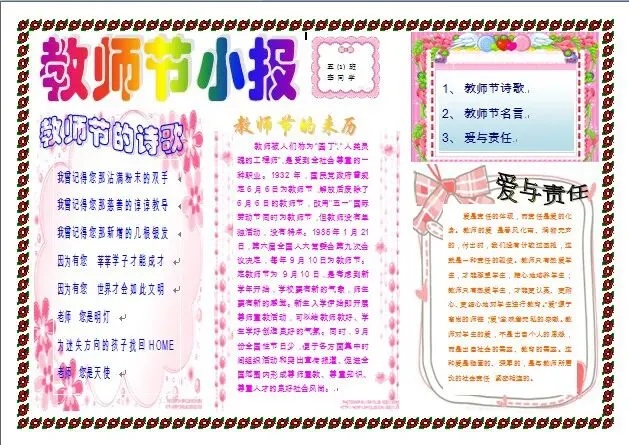 教师节小报
五(1)班
李同学
1、 教师节诗歌
2、 教师节名言
3、 爱与责任
教师节的诗歌
我曾记得您那沾满粉末的双手
我曾记得您那慈善的谆谆教导
我曾记得您那新增的几根银发
因为有您 莘莘学子才能成才
因为有您 世界才会如此文明
老师 您是明灯
为迷失方向的孩子找回 HOME
老师 您是天使
教师节的来历
教师被人们称为“园丁”“人类灵
魂的工程师”,是受到全社会尊重的一
种职业。1932 年,国民党政府曾规
定 6 月 6 日为教师节,解放后废除了
6 月 6 日的教师节,改用“五一”国际
劳动节同时为教师节,但教师没有单
独活动,没有特点。1985 年 1 月 21
日,第六届全国人大常委会第九次会
议决定,每年 9 月 10 日为教师节。
定教师节为 9 月 10 日,是考虑到新
学年开始,学校要有新的气象,师生
要有新的感觉。新生入学伊始即开展
尊师重教活动,可以给教师教好、学
生学好创造良好的气氛。同时,9 月
份全国性节日少,便于各方面集中时
间组织活动和突出宣传报道,促进全
国范围内形成尊师重教、尊重知识、
尊重人才的良好社会风尚。
爱与责任
爱是责任的体现,而责任是爱的化
身。教师的爱
是一种责任的驱使。教师只有热爱学
生,才能尊重学生,精心地培养学生;
教师只有热爱学生,才能更认真、更耐
心、更细心地对学生进行教育。“爱”源于
教师对学生的爱,不是出自个人的恩怨,
而是出自社会的需要,教育的需要。这
种爱是稳固的、深厚的,是与教师所肩
负的社会责任 紧密相连的。